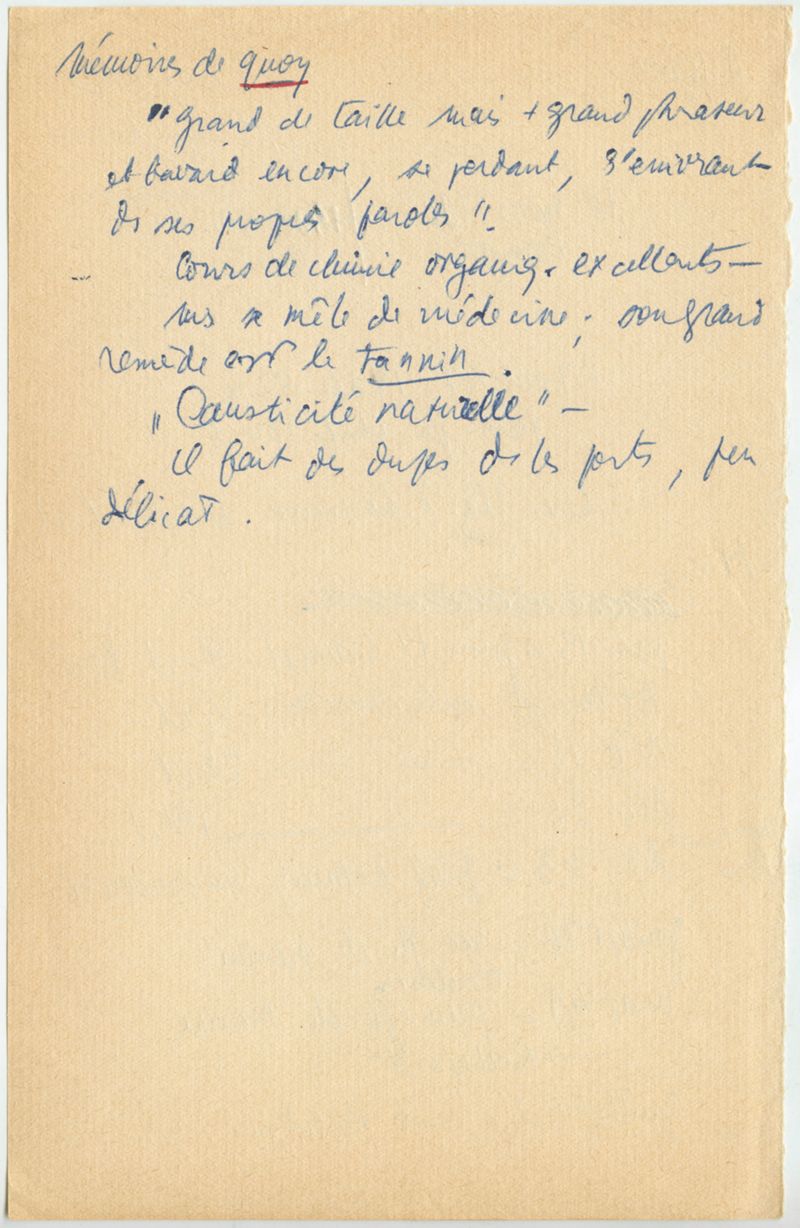 Mémoires de Quoy
"grand de taille mais + grand phraseur
et bavard encore, se perdant, s'enivrant
de ses propres paroles".
Cours de chimie organiq. excellents —
ms se mêle de médecine ; son grand
remède est le tannin.
"Causticité naturelle" —
il fait des dupes ds les ports, peu
délicat.